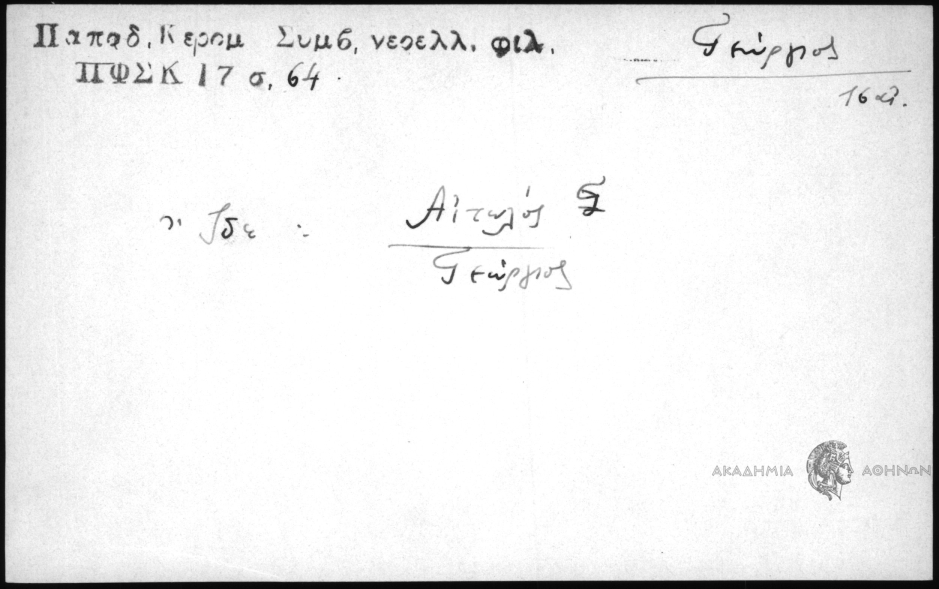 Παπαδ. Κεραμ Συμβ. νεοελλ. φιλ.
ΠΦΣΚ 17 σ. 64.
Γεώργιος
16 αἰ.
Ἴδε :
Αἰτωλός
Γεώργιος
ΑΚΑΔΗΜΙΑ ΑΘΗΝΩΝ